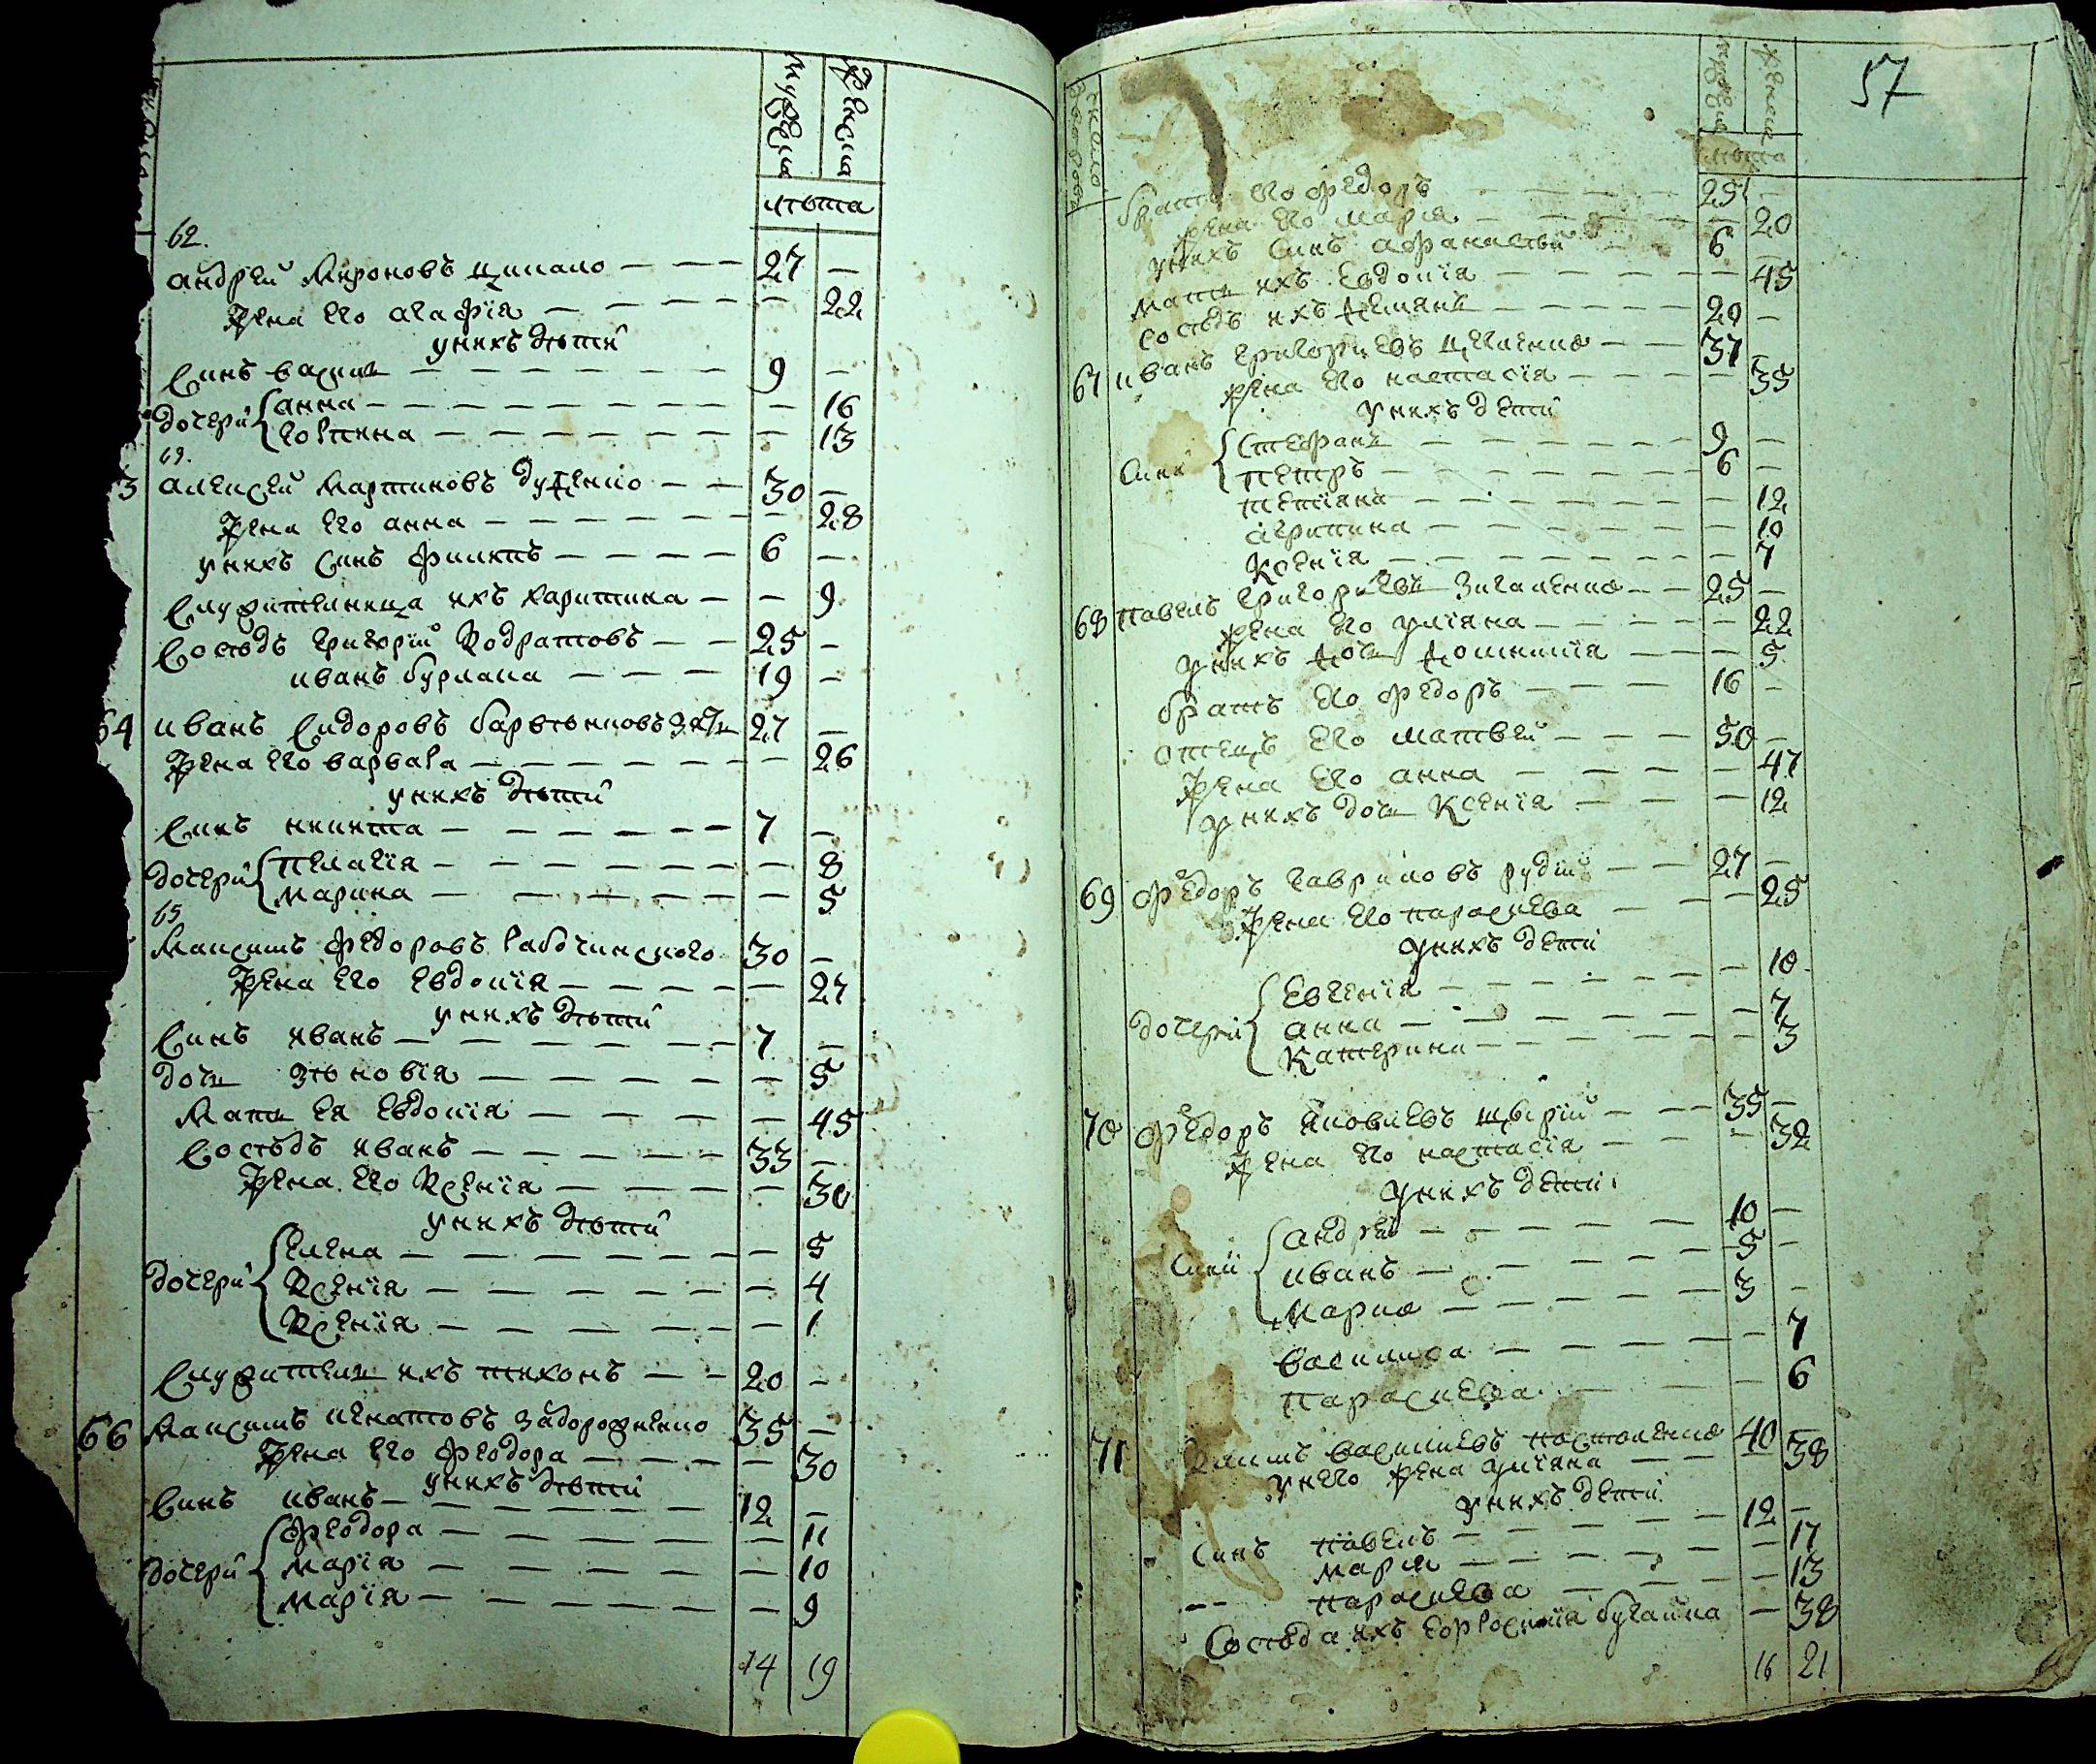 мужеска
женска
лѣта
62.
андрей мироновъ цикало — — — 27 —
жена его агафїя — — — — — 22
у нихъ дѣти
синъ василь — — — — — — 9 —
дочери анна — — — — — — — 16
— — — — — — — 13
63.
3 алексей мартиновъ дуденко — — 30 —
жена его анна — — — — — — 28
у нихъ синъ филипъ — — — — 6 —
служителница ихъ харитина — — 9
сосѣдъ григорій кодратовъ — — 25 —
иванъ бурлака — — — 19 —
64 иванъ сидоровъ 27 —
жена его варвара — — — — — — 26
у нихъ дѣти
синъ никита — — — — — — 7 —
дочери пелагїя — — — — — — — 8
марина — — — — — — 5
65
максимъ федоровъ 30 —
жена его евдокїя — — — — — 27
у нихъ дѣти
синъ иванъ — — — — — — 7 —
дочь зѣновїя — — — — — — 5
мать ея евдокїя — — — — — 45
сосѣдъ иванъ — — — — — 33 —
жена его ксенїя — — — — — 30
у нихъ дѣти
дочери елена — — — — — — — 5
ксенїя — — — — — — 4
ксенїя — — — — — — 1
служитель ихъ тихонъ — — 20 —
66 максимъ игнатовъ задорожненко 35 —
жена его феодора — — — — — 30
у нихъ дѣти
синъ иванъ — — — — — — 12 —
дочери феодора — — — — — — 11
марїя — — — — — — 10
марїя — — — — — — 9
14 19
57
мужеска
женска
лѣта
братъ его федоръ — — — — 25 —
жена его марїя — — — — — 20
у нихъ синъ афанасїй — 6 —
мать ихъ евдокїя — — — — — 45
сосѣдъ ихъ демянъ — — — — 20 —
67 иванъ григориевъ — — 37 —
жена его настасїя — — — — — 35
у нихъ дети
сини стефанъ — — — — — 9 —
петръ — — — — — — 6 —
тетїяна — — — — — — 12
агрипина — — — — — — 10
ксенїя — — — — — — 7
68 павелъ григориевъ — — 25 —
жена его улїяна — — — — — 22
у нихъ дочь домникїя — — — 5
братъ его федоръ — — — 16 —
отецъ его матвей — — — 50 —
жена его анна — — — — 47
у нихъ дочь ксенїя — — — 12
69 федоръ гавриловъ рудїй — — 27 —
жена его параскева — — — 25
у нихъ дети
дочери евгенїя — — — — — — 10
анна — — — — — — 7
катерина — — — — — — 3
70 федоръ яковлевъ — — — 35 —
жена его настасїя — — — 32
у нихъ дети
сини андрей — — — — — 10 —
иванъ — — — — — 5 —
марко — — — — — — 3 —
василиса — — — — — 7
параскева — — — — 6
71 климъ василиевъ 40 —
у него жена улїяна — — — 38
у нихъ дети
синъ павелъ — — — — — 12 —
марїя — — — — — — 17
параскева — — — — 13
сосѣда ихъ — 38
16 21